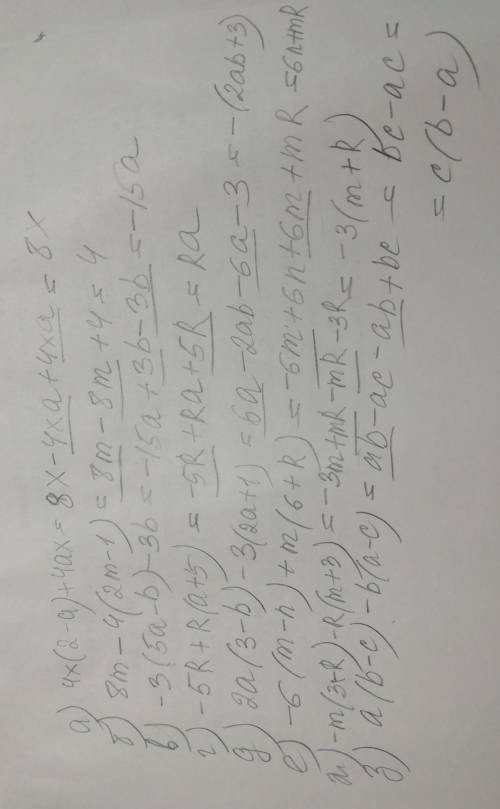 а) 4x(2-a)+4ax = 8x-4xa+4xa = 8x
б) 8m-4(2m-1) = 8m-8m+4 = 4
в) -3(5a-b)-3b = -15a+3b-3b = -15a
г) -5R+R(a+5) = -5R+Ra+5R = Ra
д) 2a(3-b)-3(2a+1) = 6a-2ab-6a-3 = -(2ab+3)
е) -6(m-n)+m(6+R) = -6m+6n+6m+mR = 6n+mR
ж) -m(3+R)-R(m+3) = -3m+mR-mR-3R = -3(m+R)
з) a(b-c)-b(a-c) = ab-ac-ab+bc = bc-ac =
= c(b-a)